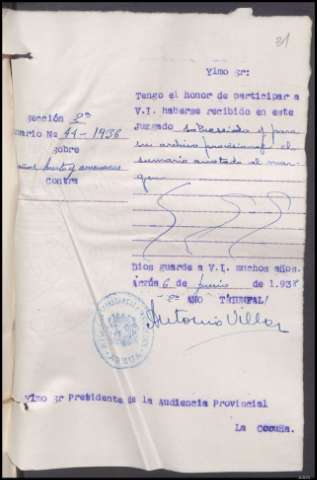 31
Ylmo Sr:
Tengo el honor de participar a
V.I. haberse recibido en este
Juzgado sobreseido y para
su archivo provisional el
sumario anotado al mar-
gen
Sección 2ª
mario Nº 44-1936
sobre
hurto y amenazas
Contra
Dios guarde a V.I. muchos años.
Arzúa 6 de junio de 1.938
2º AÑO TRIUNFAL
Antonio Villar
Ylmo Sr Presidente de la Audiencia Provincial
La Coruña.